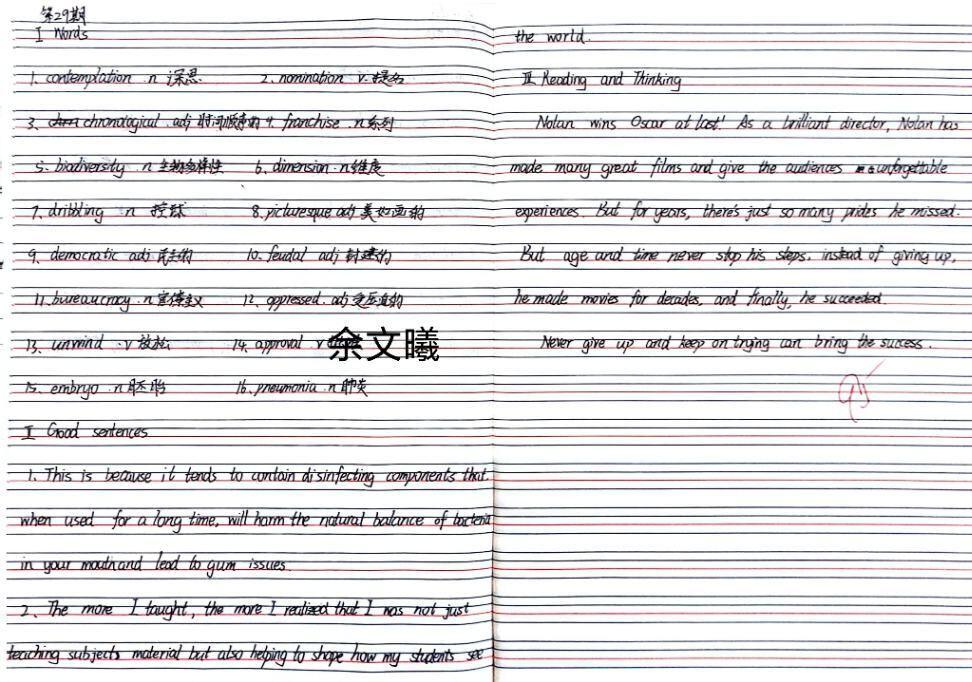 第29期
I Words
1. contemplation n 深思 2. nomination v. 提名
3. chronological adj 时间顺序的 4. franchise n 系列
5. biodiversity n 生物多样性 6. dimension n 维度
7. dribbling n 控球 8. picturesque adj 美如画的
9. democratic adj 民主的 10. feudal adj 封建的
11. bureaucracy n 官僚主义 12. oppressed adj 受压迫的
13. unwind v 放松 14. approval v
余文曦
15. embryo n 胚胎 16. pneumonia n 肺炎
II Good sentences
1. This is because it tends to contain disinfecting components that,
when used for a long time, will harm the natural balance of bacteria
in your mouth and lead to gum issues.
2. The more I taught, the more I realized that I was not just
teaching subjects material but also helping to shape how my students see
the world.
III Reading and Thinking
Nolan wins Oscar at last! As a brilliant director, Nolan has
made many great films and give the audiences unforgettable
experiences. But for years, there's just so many prides he missed.
But age and time never stop his steps. instead of giving up,
he made movies for decades, and finally, he succeeded.
Never give up and keep on trying can bring the success.
95